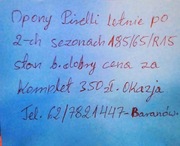 Opony Pirelli letnie po
2-ch sezonach 185/65/R15
stan b.dobry cena za
komplet 350 zł - Okazja
Tel. 62/7821447 - Baranów